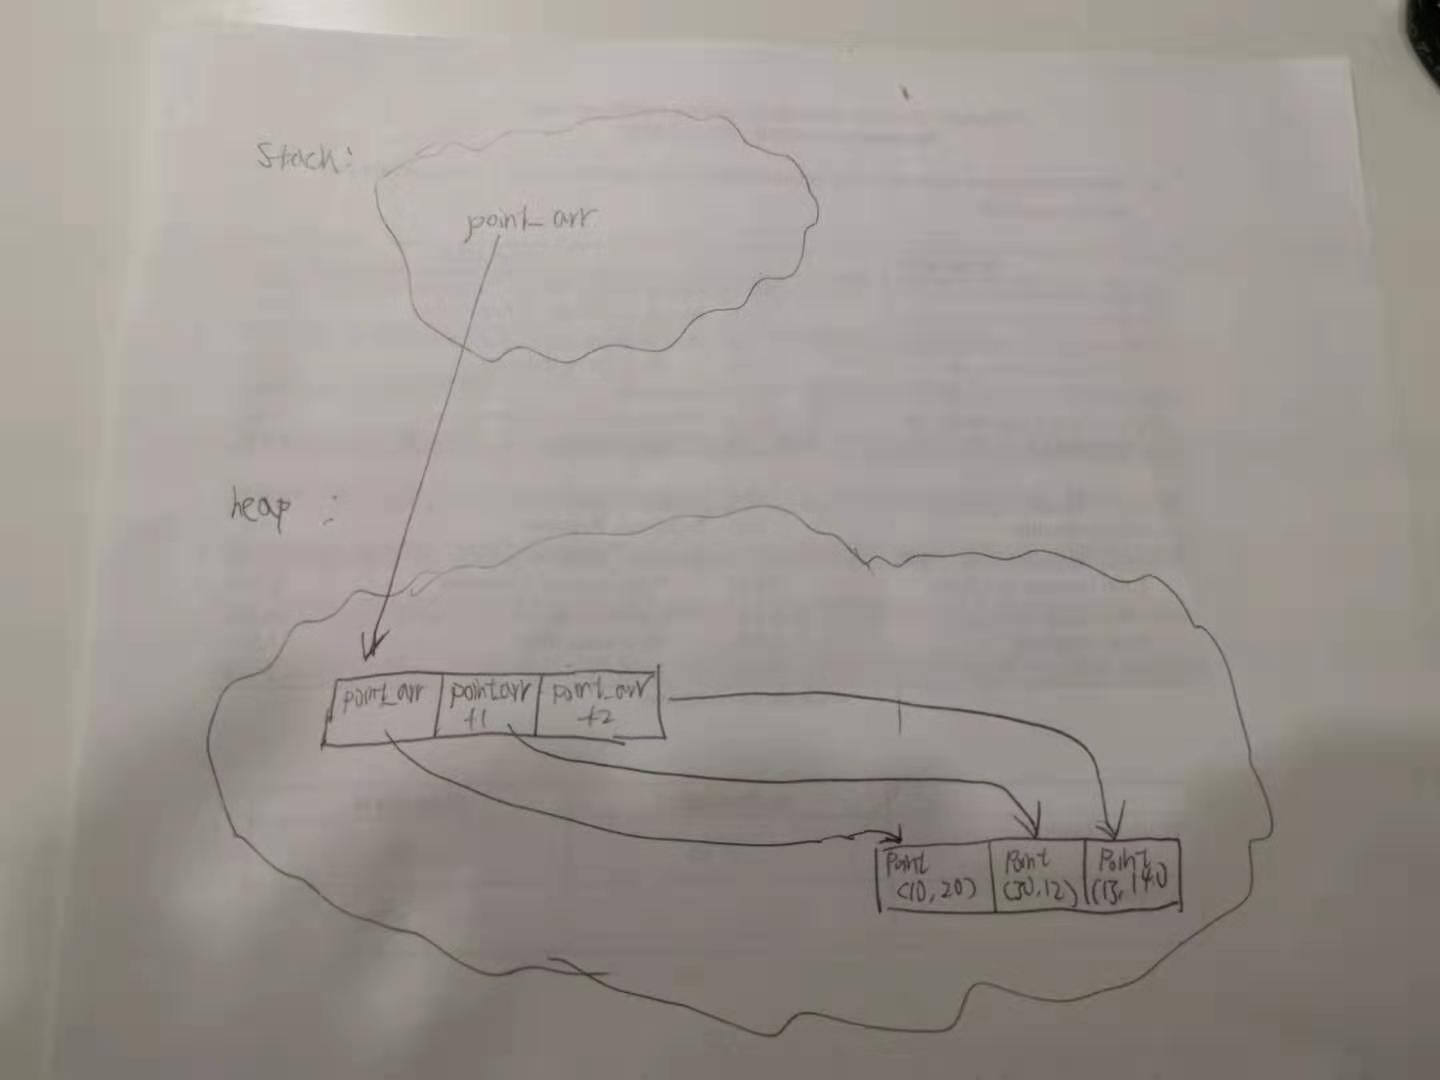 Stack:
point_arr
heap :
point_arr
pointarr
+1
point_arr
+2
Point
(10,20)
Point
(30,12)
Point